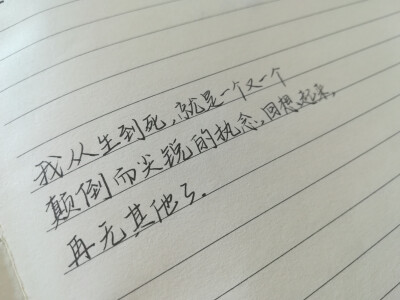 我从生到死,就是一个又一个
颠倒而尖锐的执念,回想起来,
再无其他了.